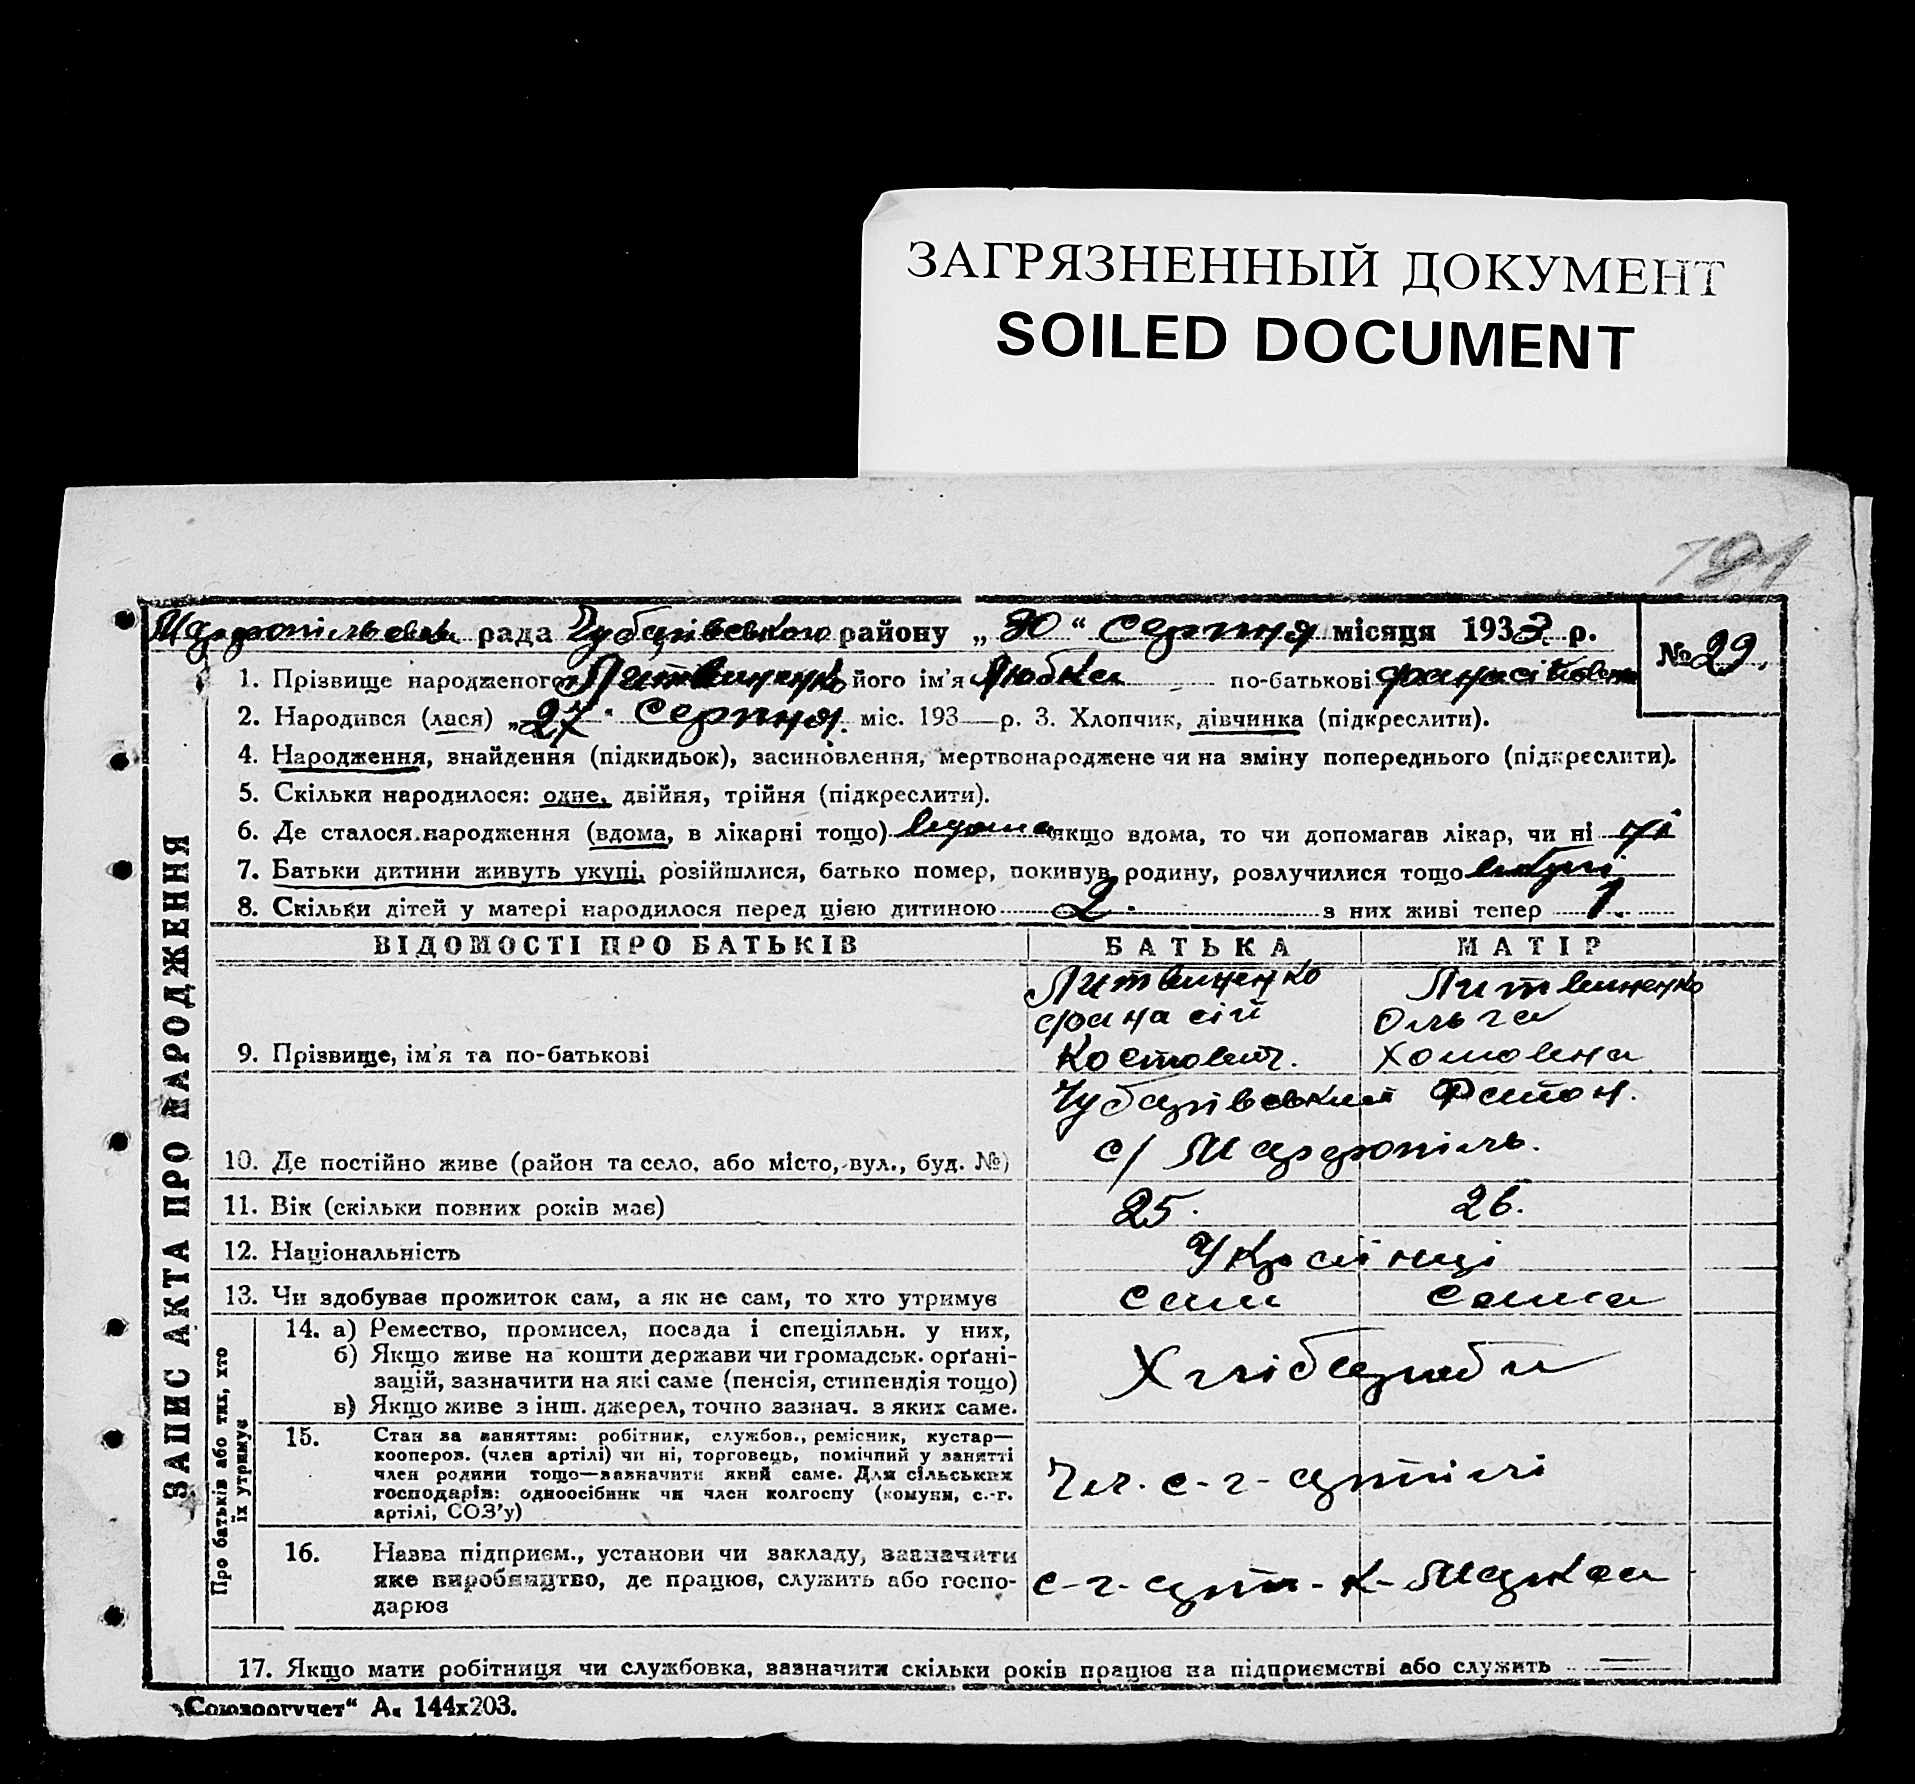 ЗАГРЯЗНЕННЫЙ ДОКУМЕНТ
SOILED DOCUMENT
191
ЗАПИС АКТА ПРО НАРОДЖЕННЯ
рада Чубарівського району „30“ Серпня місяця 1933 р. № 29.
1. Прізвище народженого Литвиненко його ім'я Любка по-батькові Фанасіївна
2. Народився (лася) „27“ Серпня. міс. 193 р. 3. Хлопчик, дівчинка (підкреслити).
4. Народження, знайдення (підкидьок), засиновлення, мертвонароджене чи на зміну попереднього (підкреслити).
5. Скільки народилося: одне, двійня, трійня (підкреслити).
6. Де сталося народження (вдома, в лікарні тощо) вдома якщо вдома, то чи допомагав лікар, чи ні ні
7. Батьки дитини живуть укупі, розійшлися, батько помер, покинув родину, розлучилися тощо вкупі
8. Скільки дітей у матері народилося перед цією дитиною 2. з них живі тепер 1.
ВІДОМОСТІ ПРО БАТЬКІВ БАТЬКА МАТІР
Литвиненко Литвиненко
Фанасій Ольга
9. Прізвище, ім'я та по-батькові Костович. Хомовна
Чубарівський Район.
10. Де постійно живе (район та село, або місто, вул., буд. №) с/ Марфопіль.
11. Вік (скільки повних років має) 25. 26.
12. Національність Українці
13. Чи здобуває прожиток сам, а як не сам, то хто утримує сам сама
Про батьків або тих, хто їх утримує
14. а) Ремество, промисел, посада і спеціяльн. у них,
б) Якщо живе на кошти держави чи громадськ. орґані-
зацій, зазначити на які саме (пенсія, стипендія тощо) Хлібороби
в) Якщо живе з інш. джерел, точно зазнач. з яких саме.
15. Стан за заняттям: робітник, службов., ремісник, кустар—
кооперов. (член артілі) чи ні, торговець, помічний у занятті
член родини тощо—зазначити який саме. Для сільських Чл. с-г- артілі
господарів: одноосібник чи член колгоспу (комуни, с.-г.
артілі, СОЗ'у)
16. Назва підприєм., установи чи закладу, зазначити
яке виробництво, де працює, служить або госпо- с-г- арт- К- Маркса
дарює
17. Якщо мати робітниця чи службовка, зазначити скільки років працює на підприємстві або служить
„Союзоргучет“ А. 144х203.